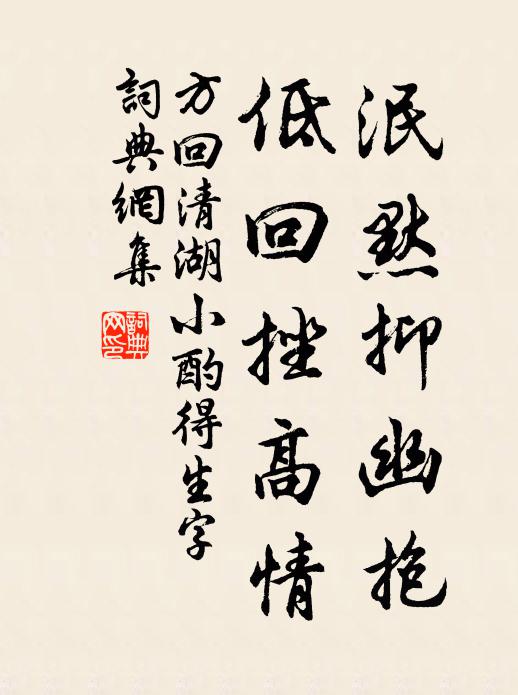 泯默抑幽抱
低回挫高情
方回清湖小酌得生字
詞典網集
詞典網印